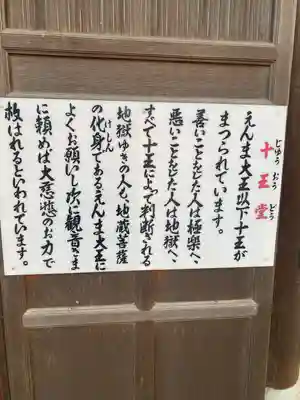 十王堂
じゆうおうどう
えんま大王以下十王が
まつられています。
善いことをした人は極楽へ、
悪いことをした人は地獄へ、
すべて十王によって判断される
地獄ゆきの人も、地蔵菩薩
の化身であるえんま大王に
けしん
よくお願いし次に観音さま
に頼めば大慈悲のお力で
救はれるといわれています。